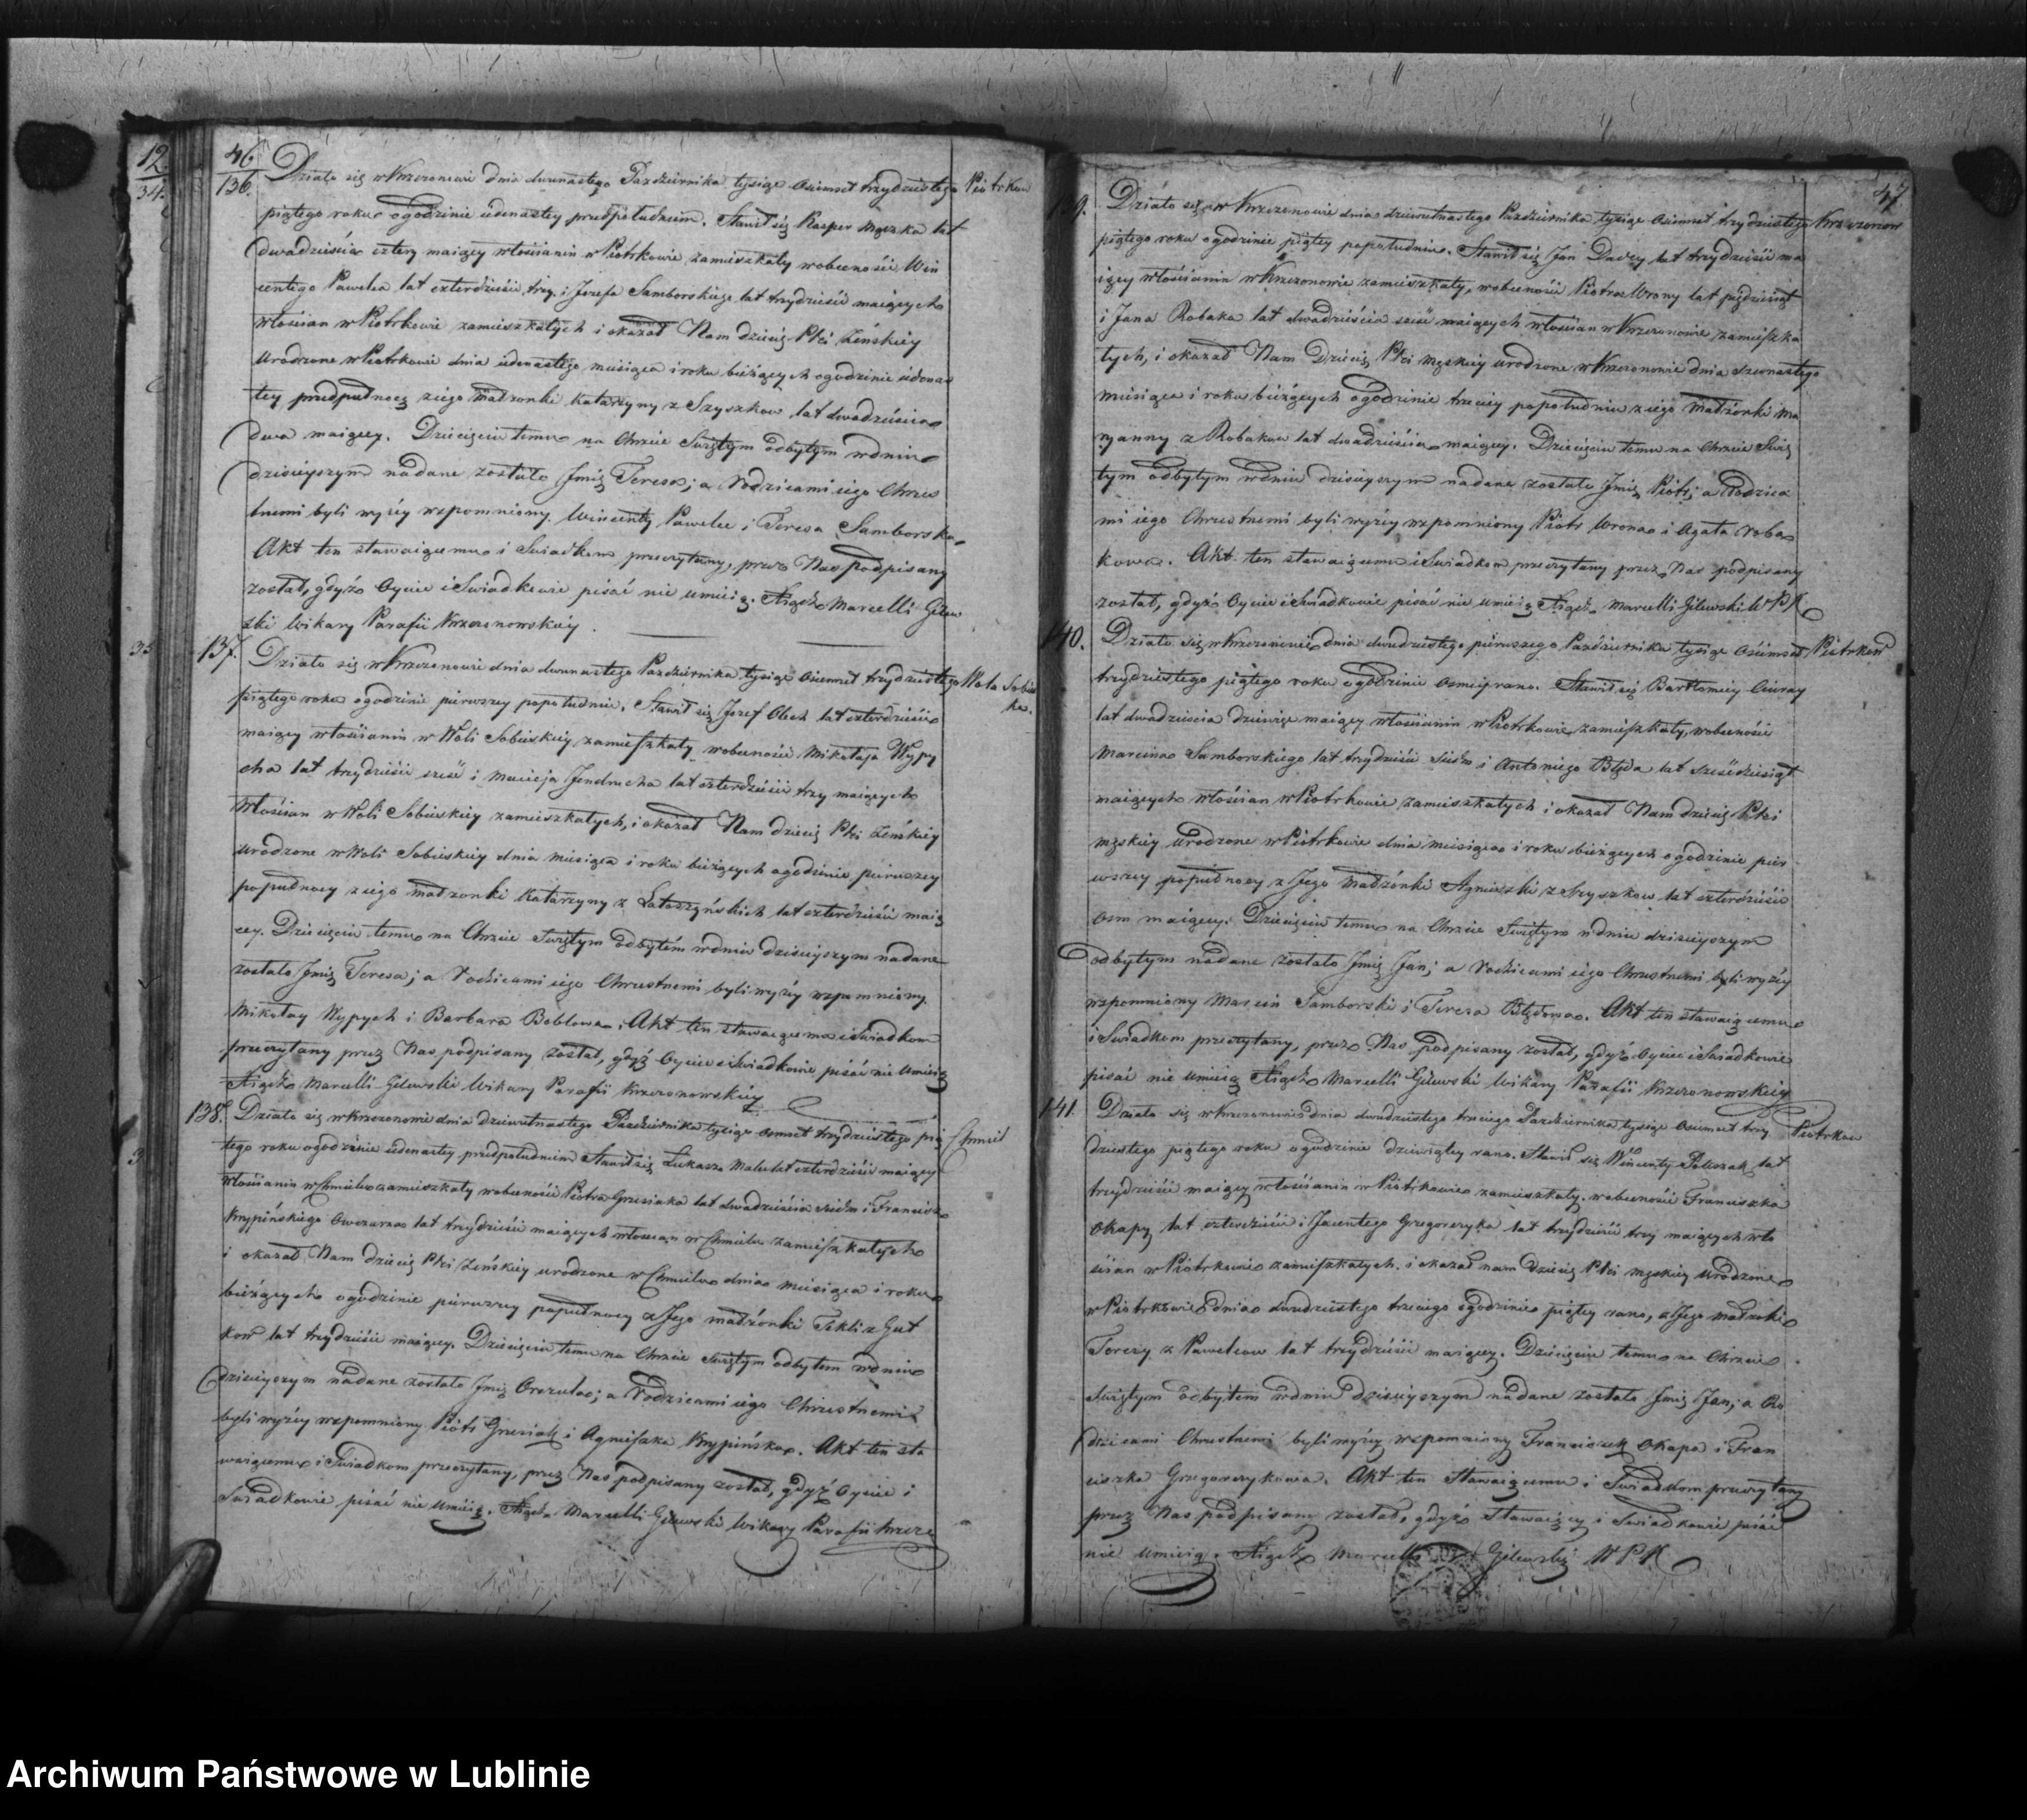 12
34.
46
136.
Działo się w Krzczonowie dnia dwunastego Pazdziernika tysiąc osiemset trzydziestego Piotrkow
piątego roku o godzinie iedenastey przedpołudniem. Stawił się Kasper Męczka lat
dwadzieścia cztery maiący włościanin w Piotrkowie zamieszkały w obecności Win
centego Pawelca lat czterdzieści trzy i Jozefa Samborskiego lat trzydzieści maiących
włościan w Piotrkowie zamieszkałych i okazał Nam dziecię Płci Zeńskiey
urodzone w Piotrkowie dnia iedenastego miesiąca i roku bieżących o godzinie iedenas
tey przedpułnocą z iego małżonki Katarzyny z Szyszkow lat dwadzieścia
dwa maiący. Dziecięciu temu na Chrzcie Swiętym odbytym w dniu
dzisieyszym nadane zostało Jmię Teresa; a Rodzicami iego Chrzes
tnemi byli wyżey wspomniony Wincenty Pawelec i Teresa Samborska
Akt ten stawaiącemu i Swiadkom przeczytany, przez Nas podpisany
został, gdyż Oyciec i Swiadkowie pisać nie umieią. Xiądz Marcelli Gilew
ski Wikary Parafii Krzczonowskiey.
35
137.
Działo się w Krzczonowie dnia dwunastego Pazdziernika tysiąc osiemset trzydziestego Wola Sobies
ka.
piątego roku o godzinie pierwszey popołudniu. Stawił się Jozef Olech lat czterdzieści
maiący włościanin w Woli Sobieskiey zamieszkały w obecności Mikołaja Wypy
cha lat trzydzieści sześć i Macieja Jendrucha lat czterdzieści trzy maiących
Włościan w Woli Sobieskiey zamieszkałych, i okazał Nam dziecię Płci Zeńskiey
urodzone w Woli Sobieskiey dnia miesiąca i roku bieżących o godzinie pierwszey
popułnocy z iego małżonki Katarzyny z Latoszyńskich lat czterdzieści maią
cey. Dziecięciu temu na Chrzcie Swiętym odbytém w dniu dzisieyszym nadane
zostało Jmię Teresa; a Rodzicami iego Chrzestnemi byli wyżey wspomniony
Mikołay Wypych i Barbara Boblowa. Akt ten stawaiącemu i Swiadkom
przeczytany przez Nas podpisany został, gdyż Oyciec i Swiadkowie pisać nie umieią
Xiądz Marcelli Gilewski Wikary Parafii Krzczonowskiey
3
138.
Działo się w Krzczonowie dnia dziewiętnastego Pazdziernika tysiąc osmset trzydziestego pią Chmiel
tego roku o godzinie iedenastey przedpołudniem Stawił się Łukasz Malu lat czterdzieści maiący
Włościanin w Chmielu zamieszkały w obecności Piotra Grusiaka lat dwadzieścia siedm i Franciszka
Krypińskiego Owczarza lat trzydzieści maiących włościan w Chmielu zamieszkałych
i okazał Nam dziecię Płci Zeńskiey urodzone w Chmielu dnia miesiąca i roku
bieżących o godzinie pierwszey popułnocy z Jego małżonki Tekli z Gut
kow lat trzydzieści maiącey. Dziecięciu temu na Chrzcie Swiętym odbytem w dniu
dzisieyszym nadane zostało Jmię Orszula; a Rodzicami iego Chrzestnemi
byli wyżey wspomniony Piotr Grusiak i Agnieszka Krypińska. Akt ten sta
waiącemu i Swiadkom przeczytany, przez Nas podpisany został, gdyż Oyciec i
Swiadkowie pisać nie umieią. Xiądz Marcelli Gilewski Wikary Parafii Krzcz
47
139.
Działo się w Krzczonowie dnia dziewiętnastego Pazdziernika tysiąc osiemset trzydziestego Krzczonow
piątego roku o godzinie piątey popołudniu. Stawił się Jan Dadey lat trzydzieści ma
iący włościanin w Krzczonowie zamieszkały, w obecności Piotra Wrony lat pięćdziesiąt
i Jana Robaka lat dwadzieścia sześć maiących włościan w Krzczonowie zamieszka
łych, i okazał Nam Dziecię Płci męskiey urodzone w Krzczonowie dnia szesnastego
miesiąca i roku bieżących o godzinie trzeciey popołudniu z iego małżonki Ma
ryanny z Robakow lat dwadzieścia maiącey. Dziecięciu temu na Chrzcie Swię
tym odbytym w dniu dzisieyszym nadane zostało Jmię Piotr; a Rodzica
mi iego Chrzestnemi byli wyżey wspomniony Piotr Wrona i Agata Roba
kowa. Akt ten stawaiącemu i Swiadkom przeczytany przez Nas podpisany
został, gdyż Oyciec i Swiadkowie pisać nie umieią Xiądz Marcelli Gilewski W P K
140.
Działo się w Krzczonowie dnia dwudziestego pierwszego Pazdziernika tysiąc osiemset Piotrkow
trzydziestego piątego roku o godzinie osmey rano. Stawił się Bartłomiey Ciuray
lat dwadzieścia dziewięć maiący włościanin w Piotrkowie zamieszkały, w obecności
Marcina Samborskiego lat trzydzieści siedm i Antoniego Błęda lat sześćdziesiąt
maiących włościan w Piotrkowie zamieszkałych i okazał Nam dziecię Płci
męskiey urodzone w Piotrkowie dnia miesiąca i roku bieżących o godzinie pier
wszey popułnocy z Jego małżonki Agnieszki z Szyszkow lat czterdzieści
osm maiącey. Dziecięciu temu na Chrzcie Swiętym w dniu dzisieyszym
odbytym nadane zostało Jmię Jan; a Rodzicami iego Chrzestnemi byli wyżey
wspomniony Marcin Samborski i Teresa Błędowa. Akt ten stawaiącemu
i Swiadkom przeczytany, przez Nas podpisany został, gdyż Oyciec i Swiadkowie
pisać nie umieią Xiądz Marcelli Gilewski Wikary Parafii Krzczonowskiey
141.
Działo się w Krzczonowie dnia dwudziestego trzeciego Pazdziernika tysiąc osiemset trzy Piotrkow
dziestego piątego roku o godzinie dziewiątey rano. Stawił się Wincenty Paluszak lat
trzydzieści maiący włościanin w Piotrkowie zamieszkały. w obecności Franciszka
Okapy lat czterdzieści i Jacentego Grzegorczyka lat trzydzieści trzy maiących wło
ścian w Piotrkowie zamieszkałych. i okazał nam Dziecię Płci męskiey urodzone
w Piotrkowie dnia dwudziestego trzeciego o godzinie piątey rano, z Jego małżonki
Teresy z Pawelcow lat trzydzieści maiącey. Dziecięciu temu na Chrzcie
Swiętym odbytem w dniu dzisieyszym nadane zostało Jmię Jan; a Ro
dzicami Chrzestnemi byli wyżey wspomniony Franciszek Okapa i Fran
ciszka Grzegorczykowa. Akt ten Stawaiącemu i Swiadkom przeczytany
przez Nas podpisany został, gdyż Stawaiący i Swiadkowie pisać
nie umieią. Xiądz Marcelli Gilewski W P K
Archiwum Państwowe w Lublinie